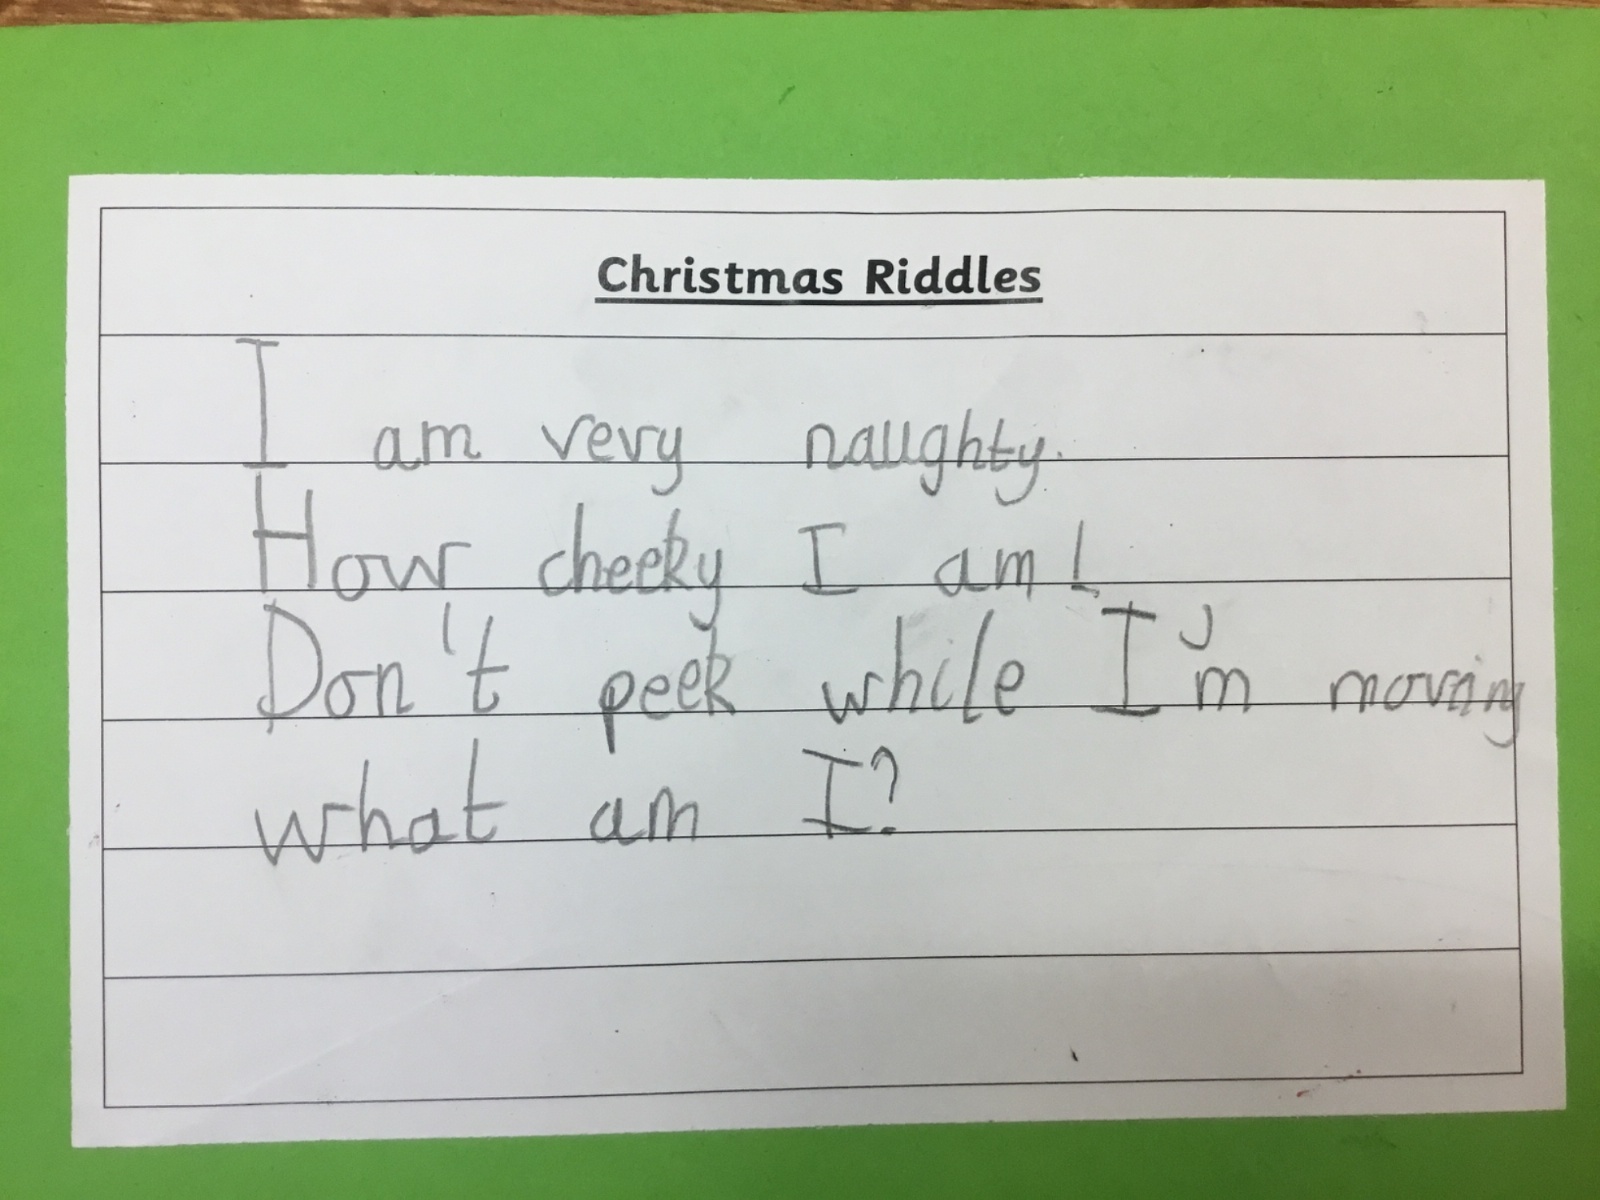 Christmas Riddles
I am very naughty.
How cheeky I am!
Don't peek while I'm moving
what am I?